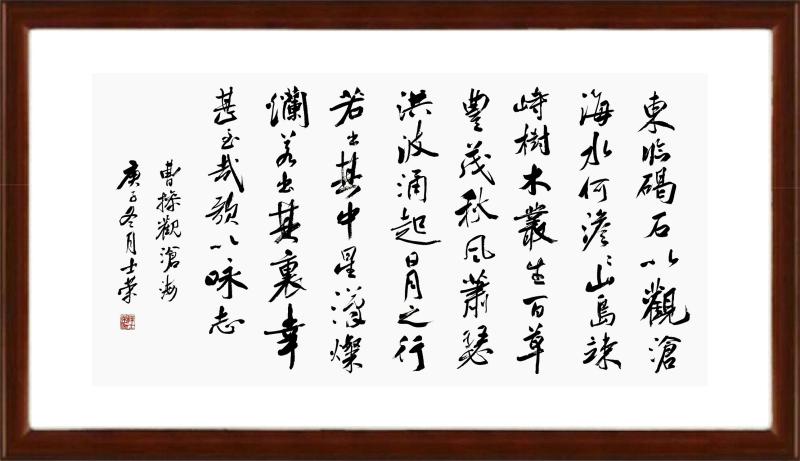 東臨碣石以觀滄
海水何澹〻山島竦
峙樹木叢生百草
豐茂秋風蕭瑟
洪波涌起日月之行
若出其中星漢燦
爛若出其裏幸
甚至哉歌以咏志
曹操觀滄海
庚子冬月士榮